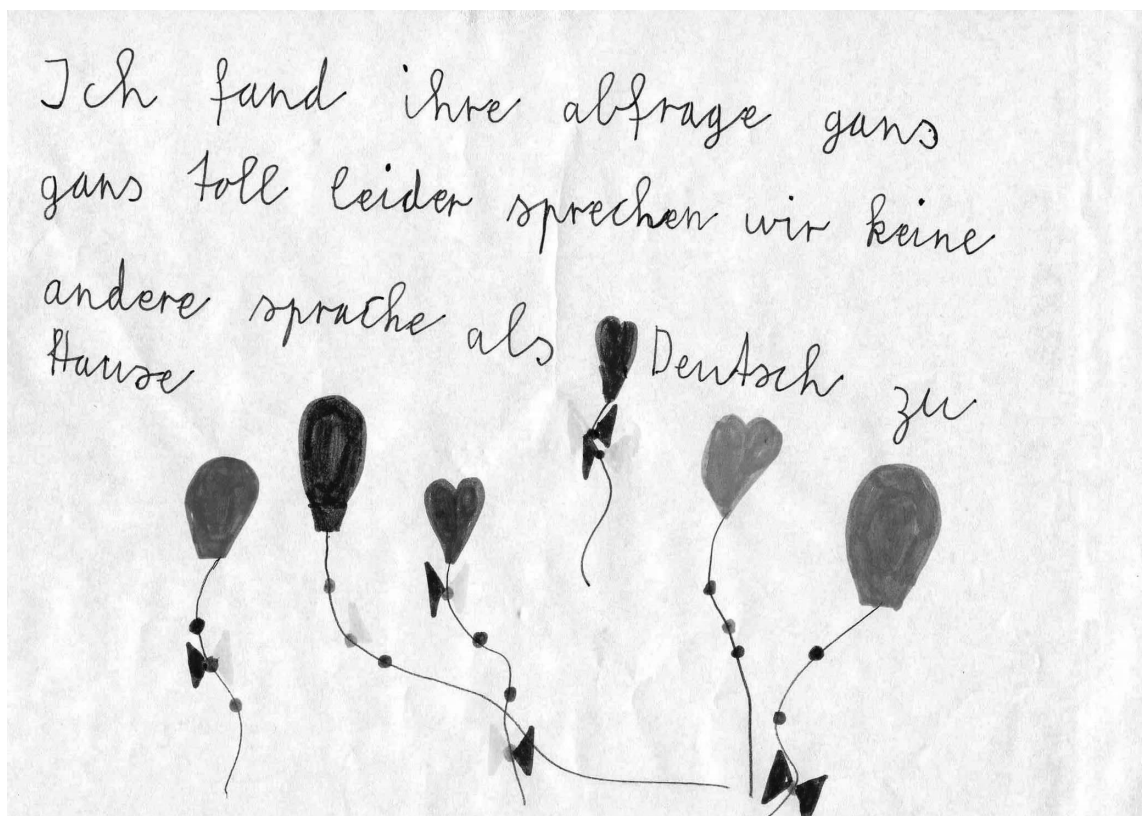 Ich fand ihre abfrage gans
gans toll leider sprechen wir keine
andere sprache als Deutsch zu
Hause